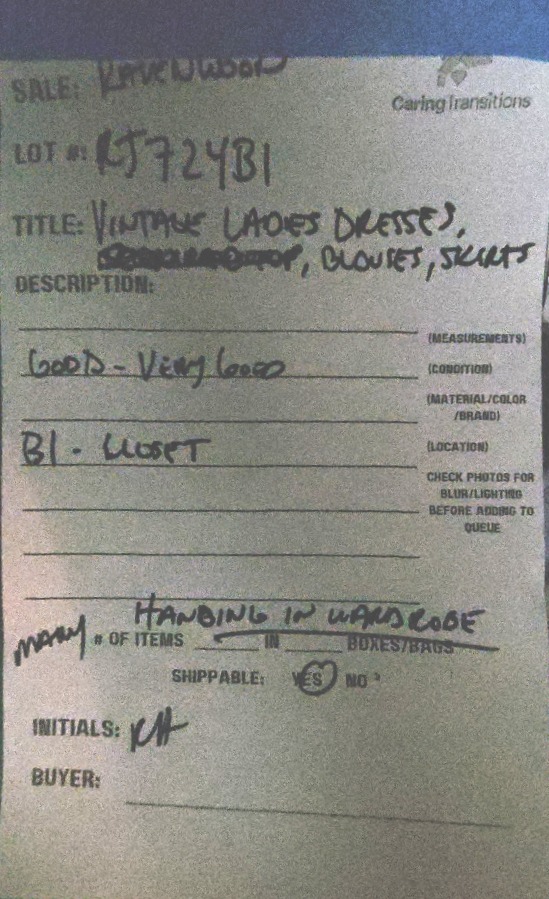 SALE: RAVENWOOD
CaringTransitions
LOT #: RJ724B1
TITLE: VINTAGE LADIES DRESSES,
, BLOUSES, SKIRTS
DESCRIPTION:
(MEASUREMENTS)
GOOD - VERY GOOD (CONDITION)
(MATERIAL/COLOR
/BRAND)
B1 - CLOSET (LOCATION)
CHECK PHOTOS FOR
BLUR/LIGHTING
BEFORE ADDING TO
QUEUE
HANGING IN WARDROBE
MANY # OF ITEMS ____ IN ____ BOXES/BAGS
SHIPPABLE: YES NO
INITIALS: RH
BUYER: